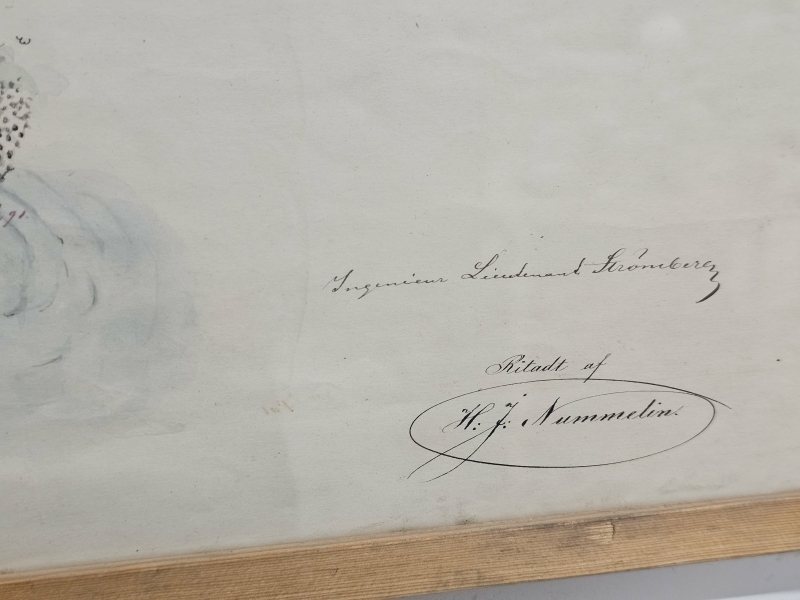 Ingenieur Lieutenant Strömberg
Ritadt af
H: J: Nummelin.